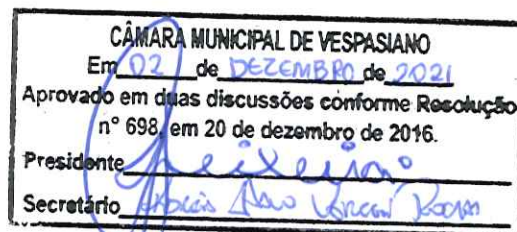 CÂMARA MUNICIPAL DE VESPASIANO
Em 02 de DEZEMBRO de 2021
Aprovado em duas discussões conforme Resolução
nº 698, em 20 de dezembro de 2016.
Presidente
Secretário